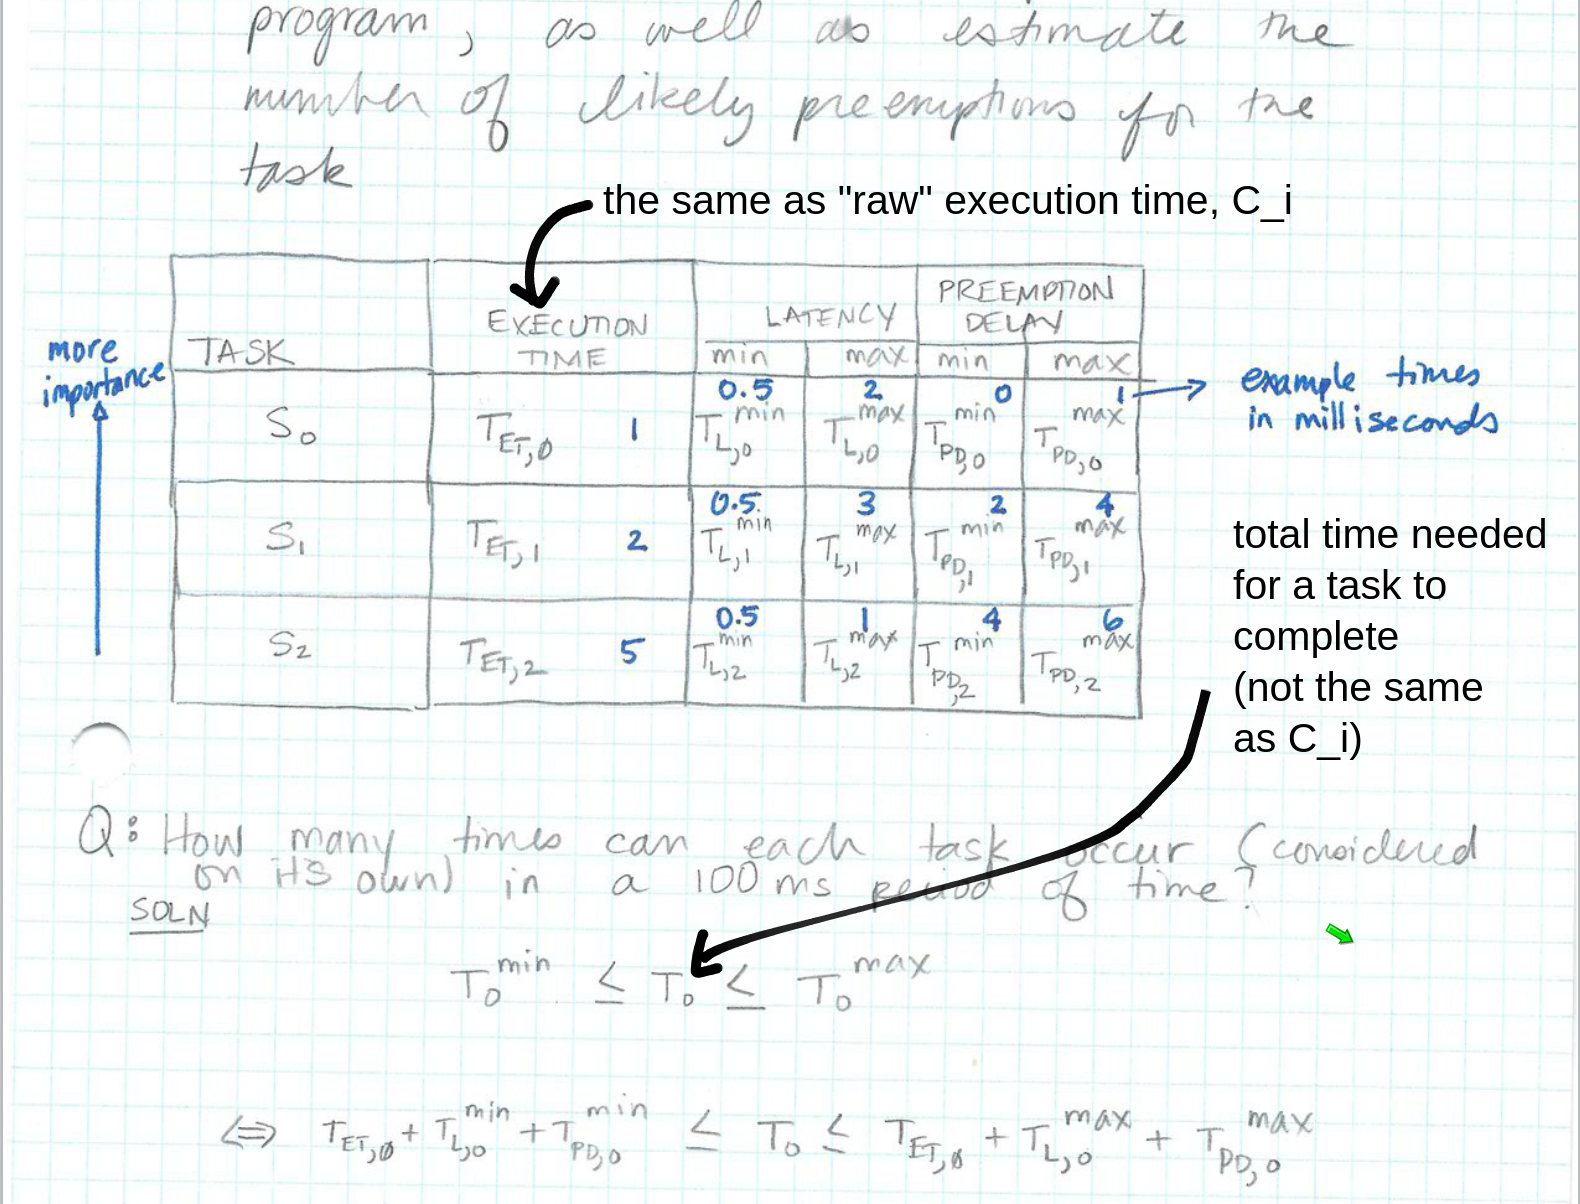 program, as well as estimate the
number of likely preemptions for the
task
the same as "raw" execution time, C_i
TASK
EXECUTION
TIME
LATENCY
min max
PREEMPTION
DELAY
min max
more
importance
S0 TET,0 1 0.5 TL,0 min 2 TL,0 max 0 TPD,0 min 1 TPD,0 max
example times
in milliseconds
S1 TET,1 2 0.5 TL,1 min 3 TL,1 max 2 TPD,1 min 4 TPD,1 max
S2 TET,2 5 0.5 TL,2 min 1 TL,2 max 4 TPD,2 min 6 TPD,2 max
total time needed
for a task to
complete
(not the same
as C_i)
Q: How many times can each task occur (considered
on it's own) in a 100 ms period of time?
SOLN
T0 min ≤ T0 ≤ T0 max
⇔ TET,0 + TL,0 min + TPD,0 min ≤ T0 ≤ TET,0 + TL,0 max + TPD,0 max